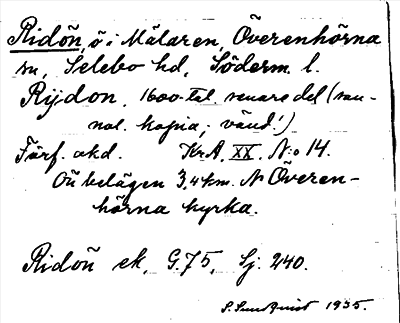 Ridön, ö i Mälaren, Överenhörna
sn, Selebo hd, Söderm. l.
Rijdon, 1600-tal. senare del (san-
nol. kopia; vänd!)
Förf. okd. KrA. XX. N:o 14.
Ön belägen 3,4 km. N Överen-
hörna kyrka.
Ridön ek. G. 75, Sj. 240.
S. Sundquist 1935.